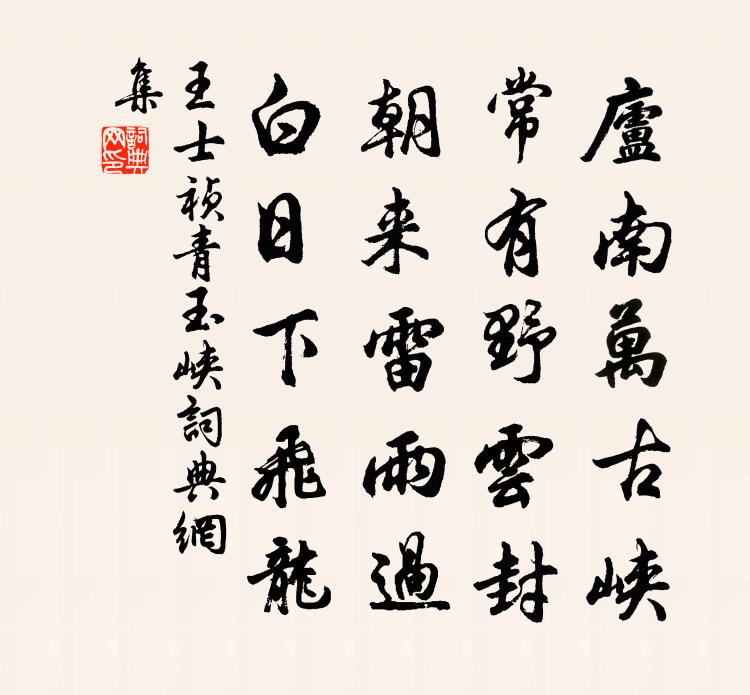 廬南萬古峽
常有野雲封
朝来雷雨過
白日下飛龍
王士禎青玉峽詞典網
集
詞典
网印